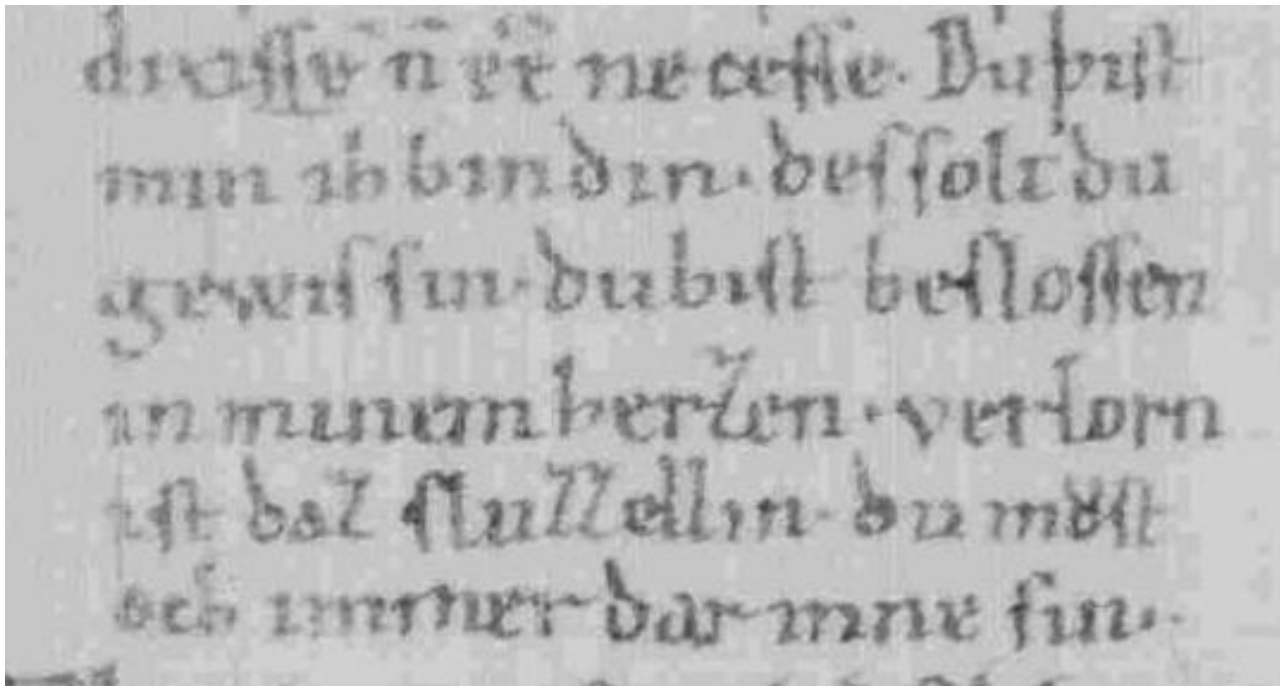 dixisse n̄ eēt necesse. Du bist
min ih bin din. des solt du
gewis sin. du bist beslossen
in minem herzen. verlorn
ist daz sluzzellin. du můst
och immer dar inne sin.